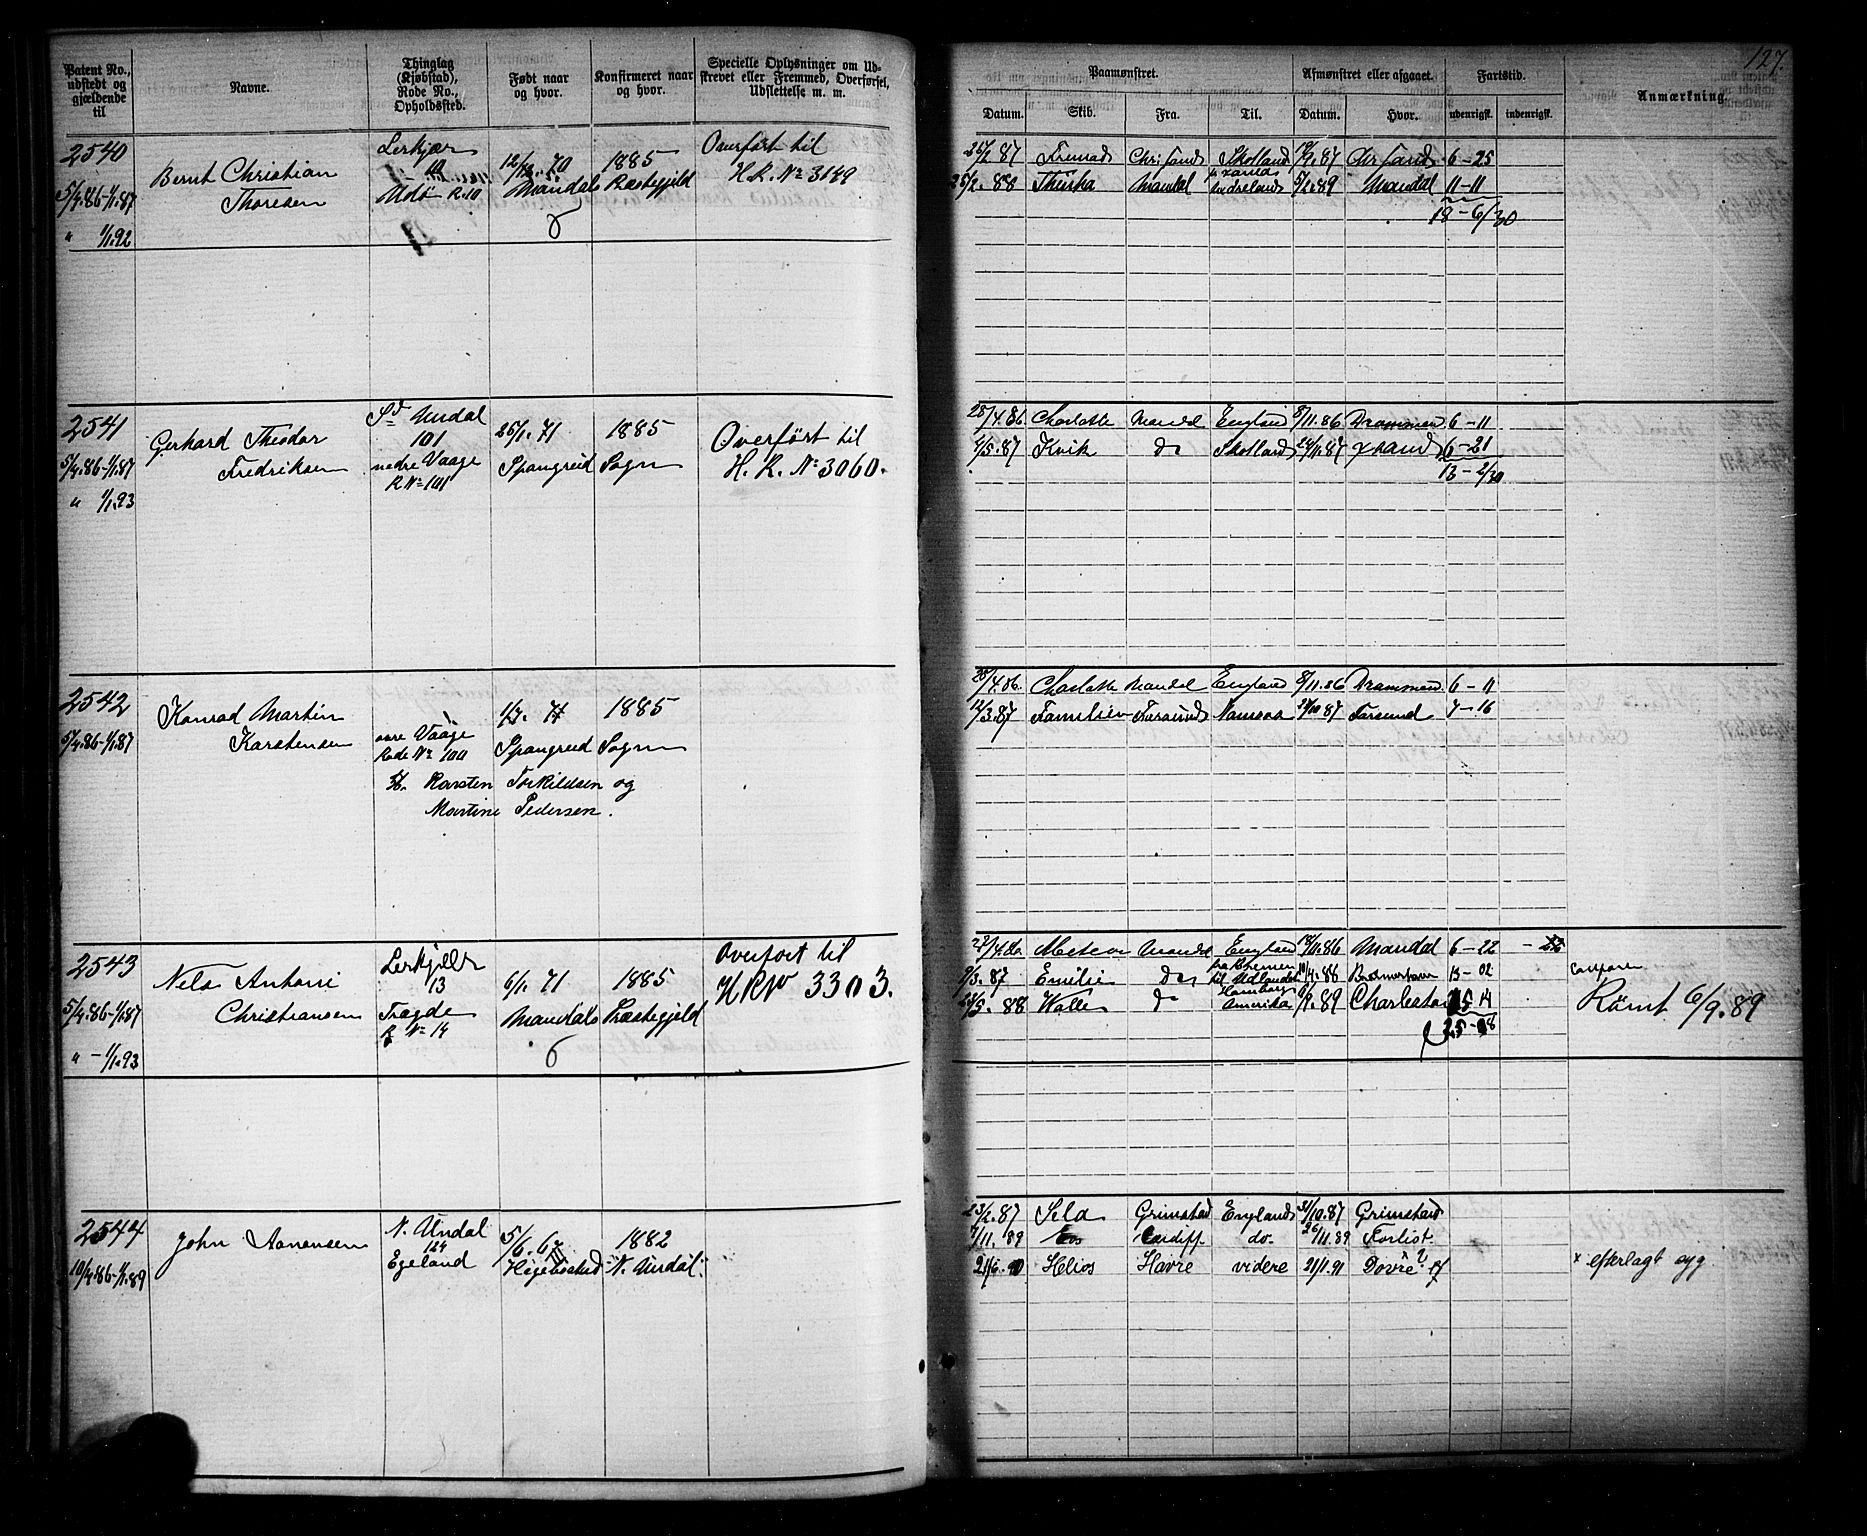 127.
Patent No., udstedt og gjældende til
Navne.
Thinglag (Kjøbstad), Rode No., Opholdssted.
Født naar og hvor.
Konfirmeret naar og hvor.
Specielle Oplysninger om Udskrevet eller Fremmed, Overførsel, Udslettelse m. m.
Paamønstret.
Afmønstret eller afgaaet.
Fartstid.
Anmærkning.
Datum. Skib. Fra. Til. Datum. Hvor. udenrigsk. indenrigsk.
2540
5/4.86-1/1.87
" 1/1.92
Bernt Christian
Thoresen
Lerkjær
10
Udø R. 10
12/12. 70
Mandals Præstegjeld
1885
Overført til
H. R. No 3149
25/2 87 Chr.sand Skotland 6-25
25/2. 88 Mandal 5/2.89 Mandal 11-11
18-6/30
2541
5/4.86-1/1.87
" 1/1.93
Gerhard Theodor
Fredriksen
Sd Undal
101
nedre Vaage
R No 101
25/1. 71
1885
Spangreid Sogn
Overført til
H. R. No 3060.
28/4.86 Charlotte Mandal England 8/11.86 Drammen 6-11
4/5.87 Kvik do Skotland 24/11.87 Xsand 6-21
13-2/30
2542
5/4.86-1/1.87
Konrad Martin
Karstensen
øvre Vaage
Rode No 100
1/7. 71
1885
Spangreid Sogn
Karsten Torkildsen og
Martine Pedersen.
28/4.86. Charlotte Mandal England 8/11.86 Drammen 6-11
12/3.87 Familien Farsund Namsos 87 Farsund 7-16
2543
5/4.86-1/1.87
" - 1/1.93
Nels Antoni
Christiansen
Lerkjær
13
Tregde
R No 14
6/1. 71
1885
Mandals Præstegjeld
Overført til
HRN 3303.
Meteor Mandal England 86 Mandal 6-22
3.87 Emilie do fra Bremen til Udlandet 88 13-02
88 Walle do Hamburg Amerika 89 Charleston 5 14
25-
Rømt 6/9.89
2544
10/4.86-1/1.89
John Aanensen
N. Undal
124
Egeland
5/6. 67
Hegebostad
1882
N. Undal.
23/2.87 Sela Grimstad England 31/10.87 Grimstad
7/11. 89 Eos Cardiff do. 26/11.89 Forlist.
21/6. 90 Helios Havre videre 21/1.91 Dovre ?
x efterlagt syg.